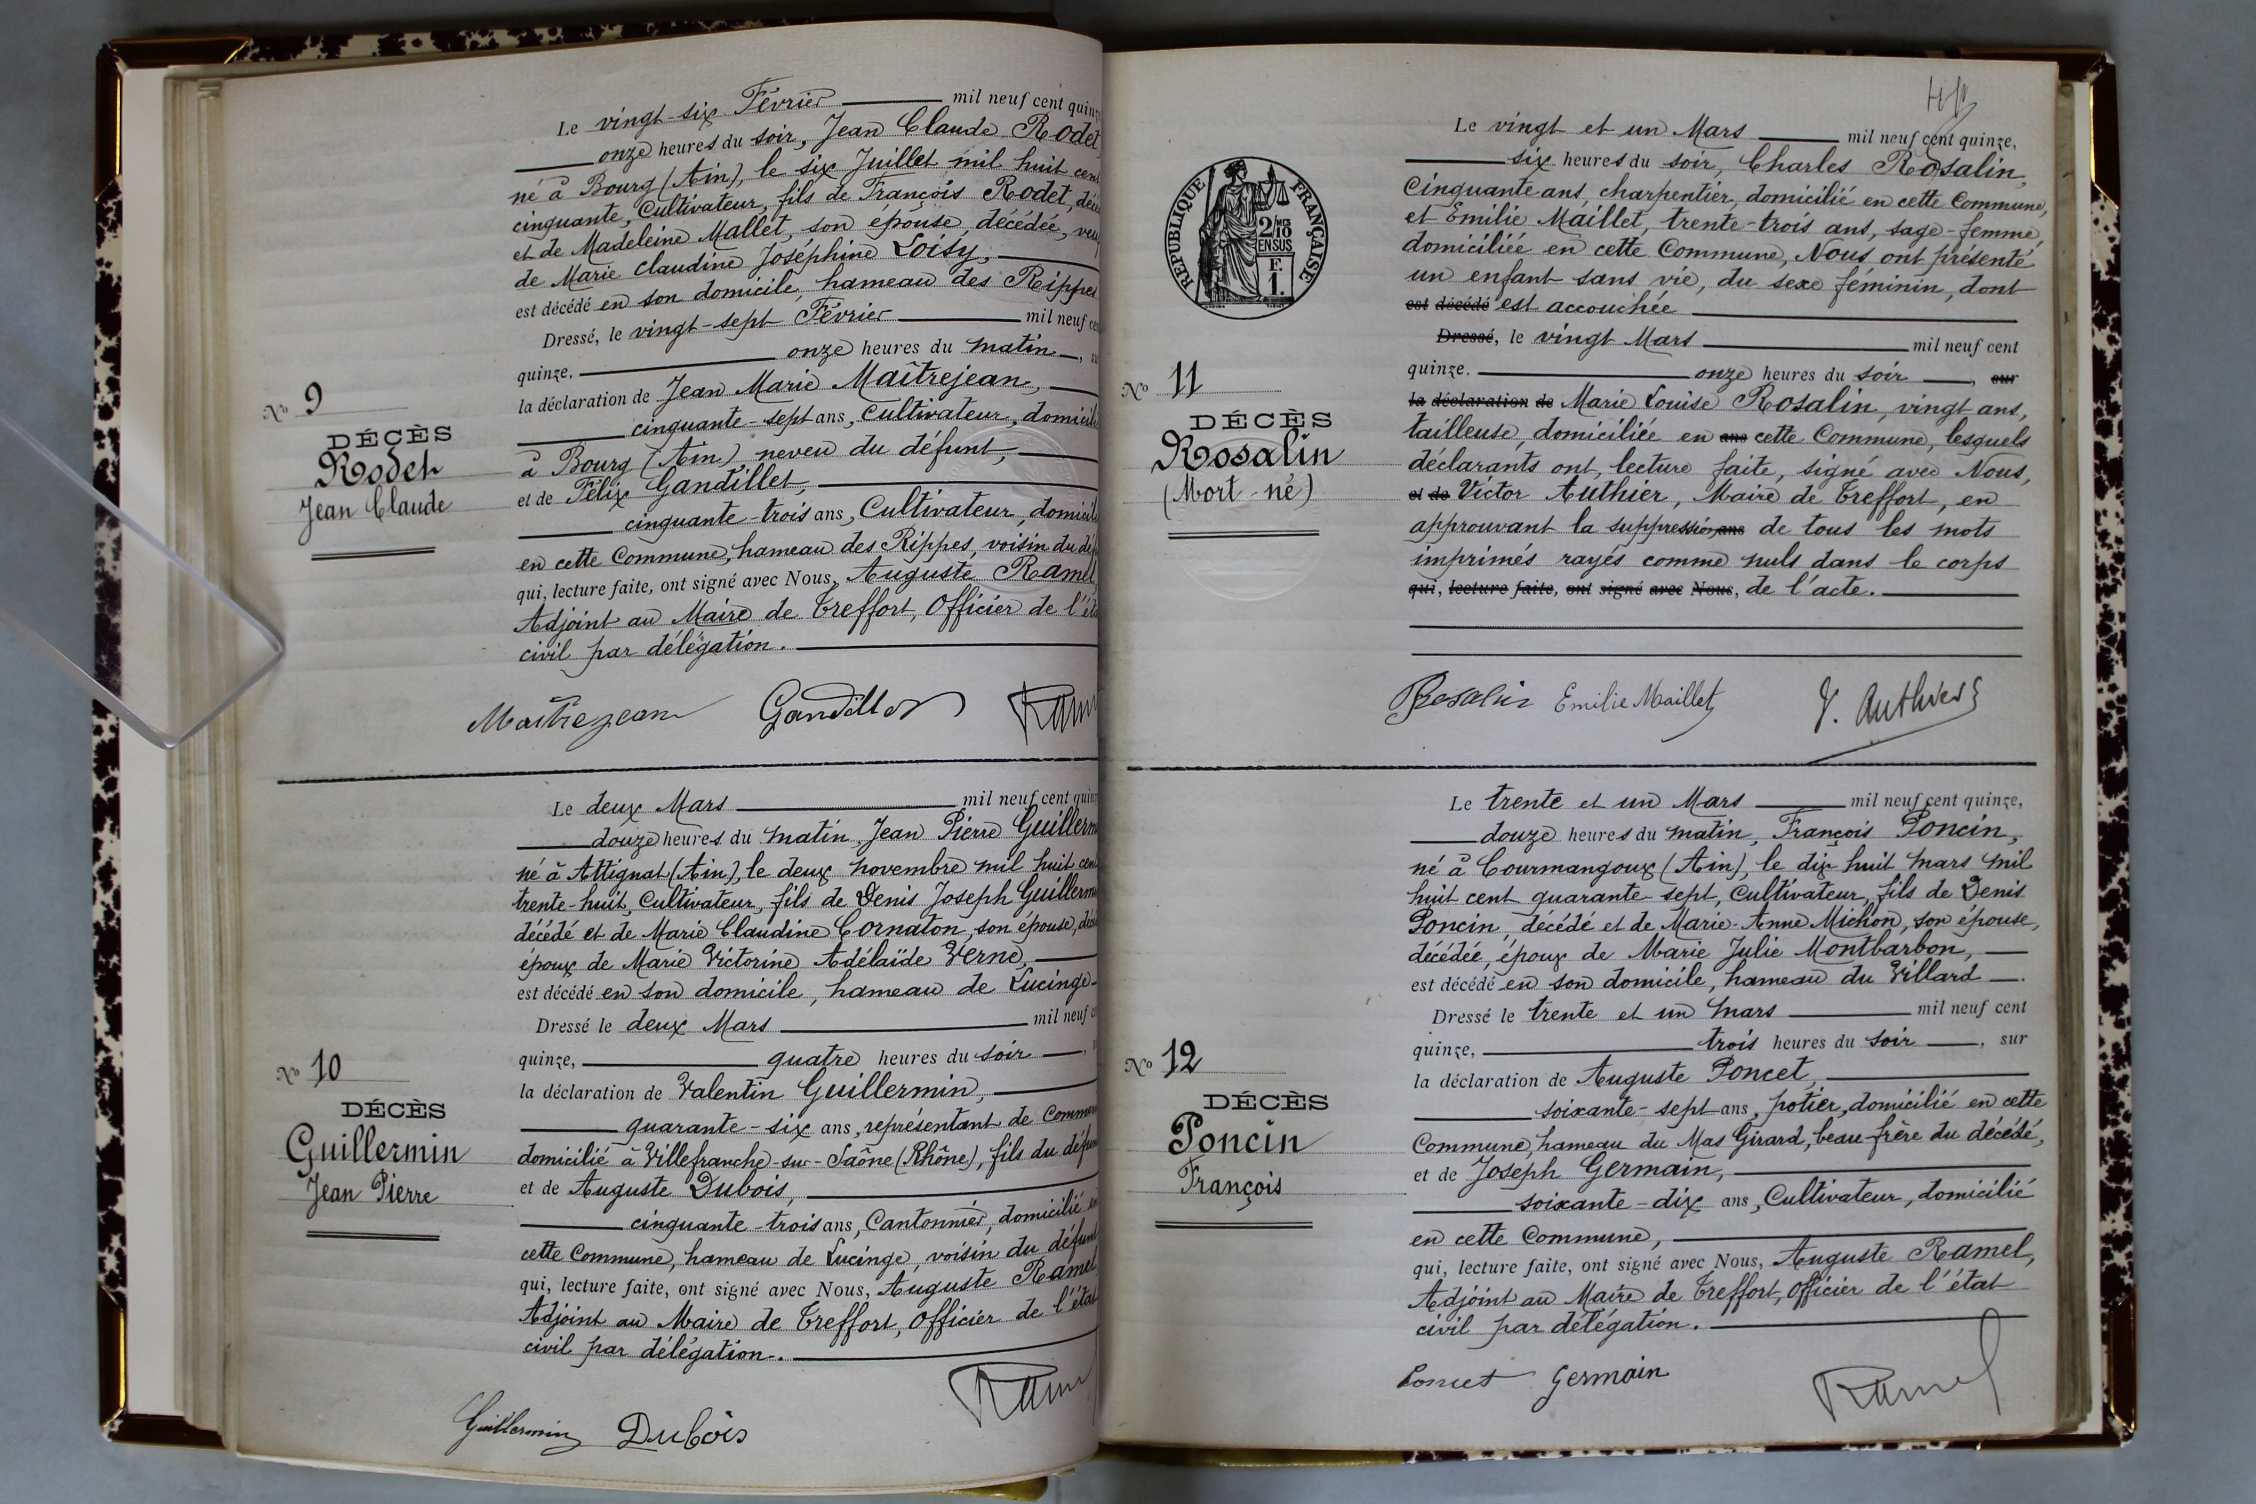 Le vingt-six Février mil neuf cent
onze heures du soir, Jean Claude Rodet,
né à Bourg (Ain), le six Juillet mil huit
cinquante, Cultivateur, fils de François Rodet,
et de Madeleine Mallet, son épouse décédée,
de Marie Claudine Joséphine Loisy,
est décédé en son domicile, hameau des Rippes
Dressé, le vingt-sept Février mil neuf
quinze. onze heures du matin,
la déclaration de Jean Marie Maîtrejean,
cinquante-sept ans, Cultivateur,
à Bourg (Ain) neveu du défunt,
et de Félix Gandillet,
cinquante-trois ans, Cultivateur,
en cette Commune, hameau des Rippes, voisin du
qui, lecture faite, ont signé avec Nous, Auguste Ramel,
Adjoint au Maire de Treffort, Officier de
civil par délégation.
No 9
DÉCÈS
Rodet
Jean Claude
Maîtrejean Gandillet
Le deux Mars mil neuf cent
douze heures du matin, Jean Pierre
né à Attignat (Ain), le deux novembre mil huit
trente-huit, Cultivateur, fils de Denis Joseph
décédé et de Marie Claudine Cornaton, son épouse,
époux de Marie Victorine Adélaïde Verne,
est décédé en son domicile, hameau de Lucinge
Dressé le deux Mars mil neuf
quinze, quatre heures du soir,
la déclaration de Valentin Guillermin,
quarante-six ans, représentant de
domicilié à Villefranche-sur-Saône (Rhône), fils du
et de Auguste Dubois,
cinquante-trois ans, Cantonnier, domicilié
cette Commune, hameau de Lucinge, voisin du
qui, lecture faite, ont signé avec Nous, Auguste Ramel
Adjoint au Maire de Treffort, Officier de l'état
civil par délégation.
No 10
DÉCÈS
Guillermin
Jean Pierre
Guillermin Dubois
RÉPUBLIQUE FRANÇAISE
2/10
EN SUS
F.
1.
Le vingt et un Mars mil neuf cent quinze,
six heures du soir, Charles Rosalin,
Cinquante ans, charpentier, domicilié en cette Commune,
et Emilie Maillet, trente-trois ans, sage-femme,
domiciliée en cette Commune, Nous ont présenté
un enfant sans vie, du sexe féminin, dont
est décédé est accouchée
Dressé, le vingt Mars mil neuf cent
quinze. onze heures du soir, sur
la déclaration de Marie Louise Rosalin, vingt ans,
tailleuse, domiciliée en ans cette Commune, lesquels
déclarants ont, lecture faite, signé avec Nous,
et de Victor Authier, Maire de Treffort, en
approuvant la suppression ans de tous les mots
imprimés rayés comme nuls dans le corps
qui, lecture faite, ont signé avec Nous, de l'acte.
No 11
DÉCÈS
Rosalin
(Mort-né)
Rosalin Emilie Maillet V. Authier
Le trente et un Mars mil neuf cent quinze,
douze heures du matin, François Poncin,
né à Courmangoux (Ain), le dix huit mars mil
huit cent quarante-sept, Cultivateur, fils de Denis
Poncin, décédé et de Marie-Anne Michon, son épouse,
décédée, époux de Marie Julie Montbarbon,
est décédé en son domicile, hameau du Villard.
Dressé le trente et un mars mil neuf cent
quinze, trois heures du soir, sur
la déclaration de Auguste Poncet,
soixante-sept ans, potier, domicilié en cette
Commune, hameau du Mas Girard, beau-frère du décédé,
et de Joseph Germain,
soixante-dix ans, Cultivateur, domicilié
en cette Commune,
qui, lecture faite, ont signé avec Nous, Auguste Ramel,
Adjoint au Maire de Treffort, Officier de l'état
civil par délégation.
No 12
DÉCÈS
Poncin
François
Poncet Germain Ramel